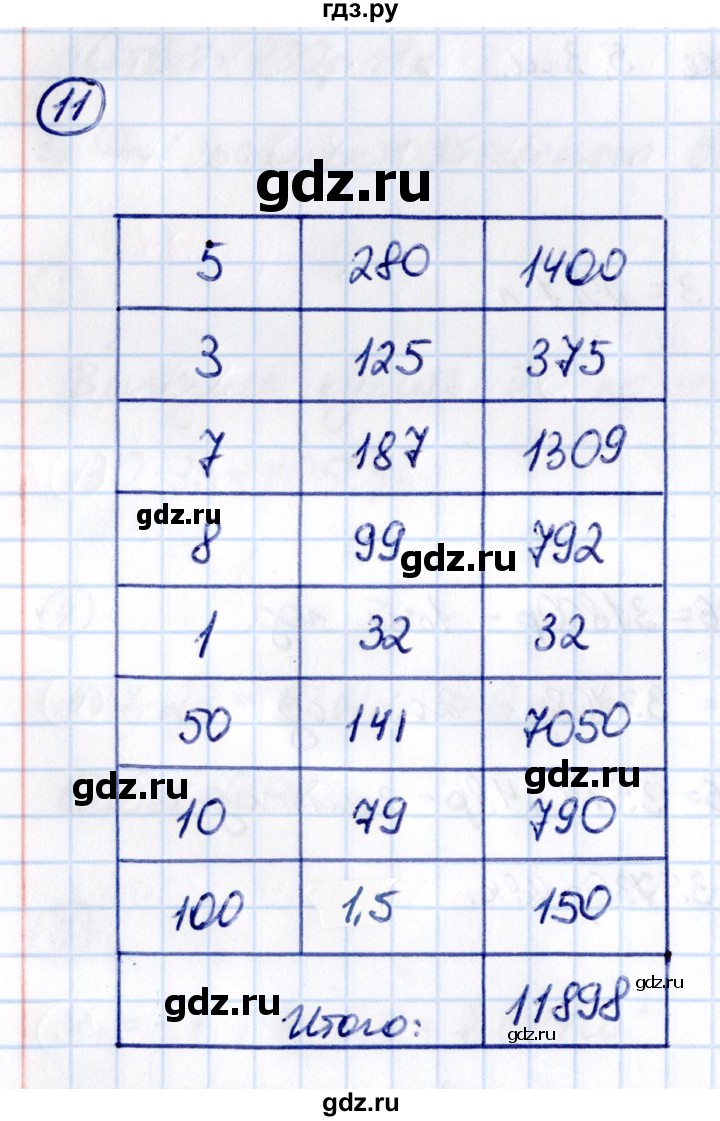 гдз.ру
11
gdz.ru
5 280 1400
3 125 375
7 187 1309
gdz.ru
8 99 792
gdz.ru
1 32 32
50 141 7050
gdz.ru
gdz.ru
10 79 790
100 1,5 150
gdz.ru
Итого: 11898
gdz.ru
gdz.ru
gdz.ru